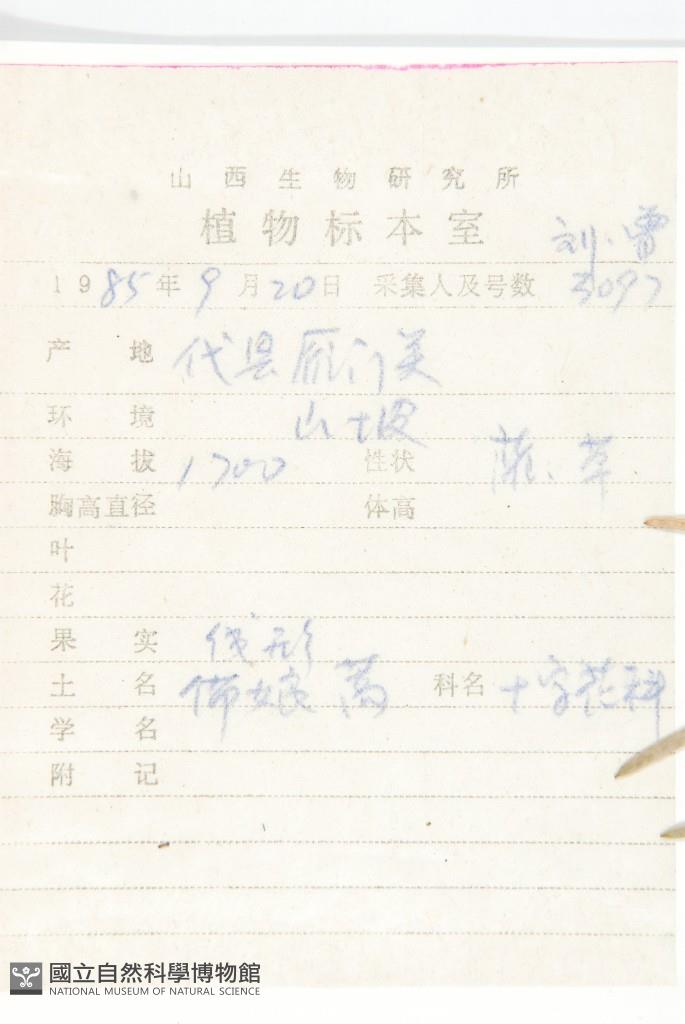 山西生物研究所
植物标本室
刘、曾
1985年9月20日 采集人及号数 3097
产地 代县雁门关
环境 山坡
海拔 1700 性状 草
胸高直径 体高
叶
花
果实 线形
土名 娘蒿 科名 十字花科
学名
附记
國立自然科學博物館
NATIONAL MUSEUM OF NATURAL SCIENCE